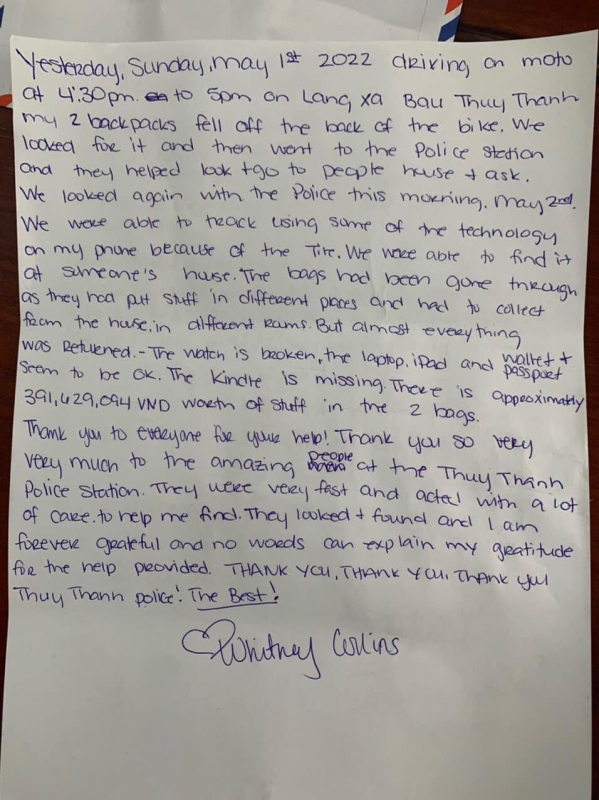 Yesterday, Sunday, May 1st 2022 driving on moto
at 4:30pm. to 5pm on Lang xa Bau Thuy Thanh
my 2 backpacks fell off the back of the bike. We
looked for it and then went to the Police Station
and they helped look + go to people house + ask.
We looked again with the Police this morning. May 2nd.
We were able to track using some of the technology
on my phone because of the Tire. We were able to find it
at someone's house. The bags had been gone through
as they had put stuff in different places and had to collect
from the house, in different rooms. But almost everything
was Returned. - The watch is broken, the laptop, iPad and wallet + passport
seem to be OK. The Kindle is missing. There is approximately
391,429,094 VND worth of stuff in the 2 bags.
Thank you to everyone for your help! Thank you so very
very much to the amazing people at the Thuy Thanh
Police Station. They were very fast and acted with a lot
of care. to help me find. They looked + found and I am
forever grateful and no words can explain my gratitude
for the help provided. THANK YOU, THANK YOU, Thank you
Thuy Thanh police! The Best!
Whitney Collins